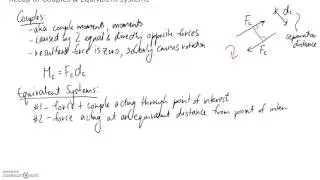 Recap of Couples & Equivalent Systems
Couples:
- aka couple moments, moments
- caused by 2 equal & directly opposite forces
- resultant force is zero, solely causes rotation
Mc = Fc dc
Fc
dc
Fc
separation
distance
Equivalent Systems:
#1 - force + couple acting through point of interest
#2 - force acting at an equivalent distance from point of inter